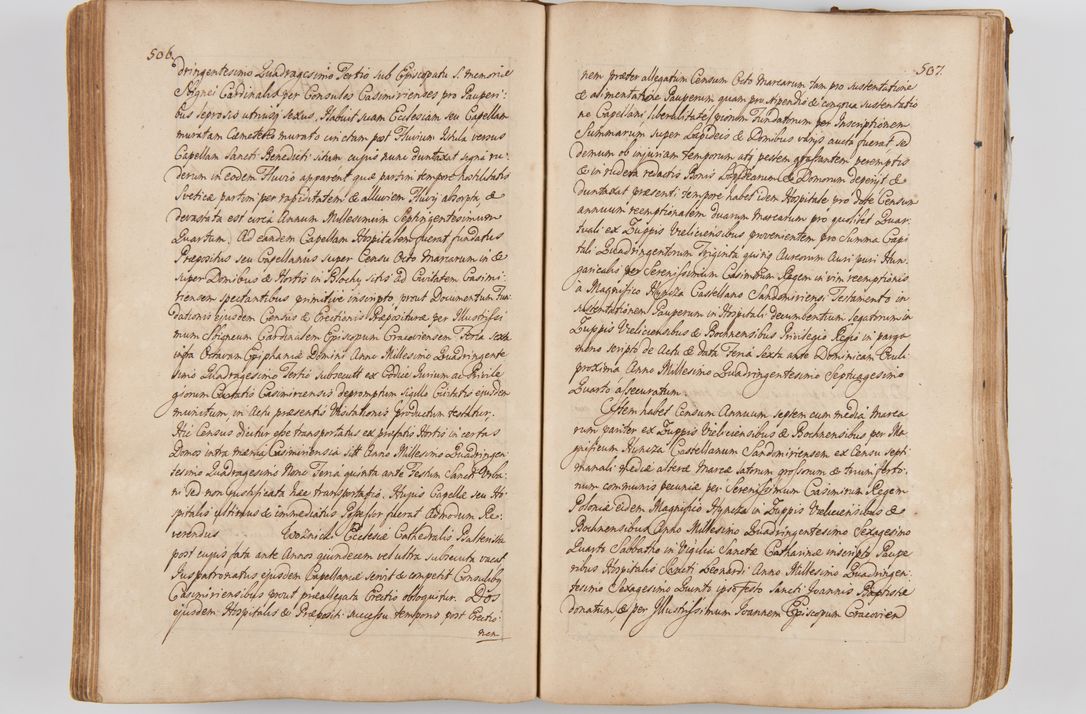 506.
dringentesimo Quadragesimo Tertio sub Episcopatu S. memoriæ
Sbignei Cardinalis per Consules Casimirienses pro Pauperi:
bus leprosis utriusq sexus. Habuit suam Ecclesiam seu Capellam
muratam Cæmeterio murato cinctam post Fluvium Istula versus
Capellam Sancti Benedicti sitam cujus nunc duntaxat signa ru:
derum in eodem Fluvio apparent quæ partim tempore hostilitatis
Sveticæ partim per rapiditatem & alluviem Fluvij absorpta &
devastata est circa Annum Millesimum Septingentesimum
Quartum. Ad eandem Capellam Hospitalem fuerat fundatus
Præpositus seu Capellanus super Censu Octo Marcarum in &
super Domibus & Hortis in Blochy sitis ad Civitatem Casimi:
riensem spectantibus primitive inscripto, prout Documentum Fun
dationis ejusdem Census & Erectionis Præpositura per Illustrissi
mum Sbigneum Cardinalem Episcopum Cracoviensem Feria sexta
infra Octavam Epiphaniæ Domini Anno Millesimo Quadringente
simo Quadragesimo Tertio subsecuta ex Codice Jurium ac Privile
giorum Civitatis Casimiriensis depromptum sigillo Civitatis ejusdem
munitum in Actu præsentis Visitationis productum testatur.
Hic Census dicitur esse transportatus ex præfatis Hortis in certas
Domos intra mænia Casimiriensia sitt Anno Millesimo Quadringen:
tesimo Quadragesimo Nono Feria quinta ante Festum Sancti Urba:
ni sed non justificata hæc transportatio. Hujus Capellæ seu Ho
spitalis ultimus & immediatus Possessor fuerat Admodum Re:
verendus Woźnicki Ecclesiæ Cathedralis Psalterista
post cujus fata ante Annos quindecem vel ultra subsecuta vacat
Juspatronatus ejusdem Capellaniæ servit & competit Consulib9
Casimiriensibus prout præallegata Erectio obloquitur. Dos
ejusdem Hospitalis & Præpositi successu temporis post Erectio:
nem
507.
nem præter allegatum Censum Octo Marcarum tam pro sustentatione
& alimentatione Pauperum quam pro stipendio & congrua sustentatio
ne Capellani liberalitate piorum Fundatorum per Inscriptionem
Summarum super Lapideis & Domibus varijs aucta fuerat sed
demum ob injuriam temporum atq pestem grassantem peremptis
& in rudera redactis Bonis Lapidearum & Domorum deperijt &
duntaxat præsenti tempore habet idem Hospitale pro Dote Censum
annuum reemptionalem duarum Marcarum pro quolibet Quar:
tuali ex Zuppis Vieliciensibus provenientem pro Summa Capi
tali Quadringentorum Triginta quinq Aureorum Auri puri Hun:
garicalis per Serenissimum Casimirum Regem in vim reemptionis
a Magnifico Hynsza Castellano Sandomiriensi Testamento in
sustentationem Pauperum in Hospitali decumbentium legatorum in
Zuppis Vieliciensibus & Bochnensibus Privilegio Regio in parga
meno scripto de Actu & Data Feria Sexta ante Dominicam Oculi
proxima Anno Millesimo Quadringentesimo Septuagesimo
Quarto assecuratum.
Item habet Censum Annuum septem cum media Marca
rum pariter ex Zuppis Vieliciensibus & Bochnensibus per Ma
gnificum Hynsza Castellanum Sandomiriensem ex Censu septi
manali mediæ alteræ Marcæ latorum grossorum & trium ferto
num communis pecuniæ per Serenissimum Casimirum Regem
Poloniæ eidem Magnifico Hyncza in Zuppis Vieliciensibus &
Bochnensibus Anno Millesimo Quadringentesimo Sexagesimo
Quarto Sabbatho in Vigilia Sanctæ Catharinæ inscripto Paupe
ribus Hospitalis Sancti Leonardi Anno Millesimo Quadringen:
tesimo Sexagesimo Quinto ipso Festo Sancti Joannis Baptistæ
donatum, & per Illustrissimum Joannem Episcopum Cracovien